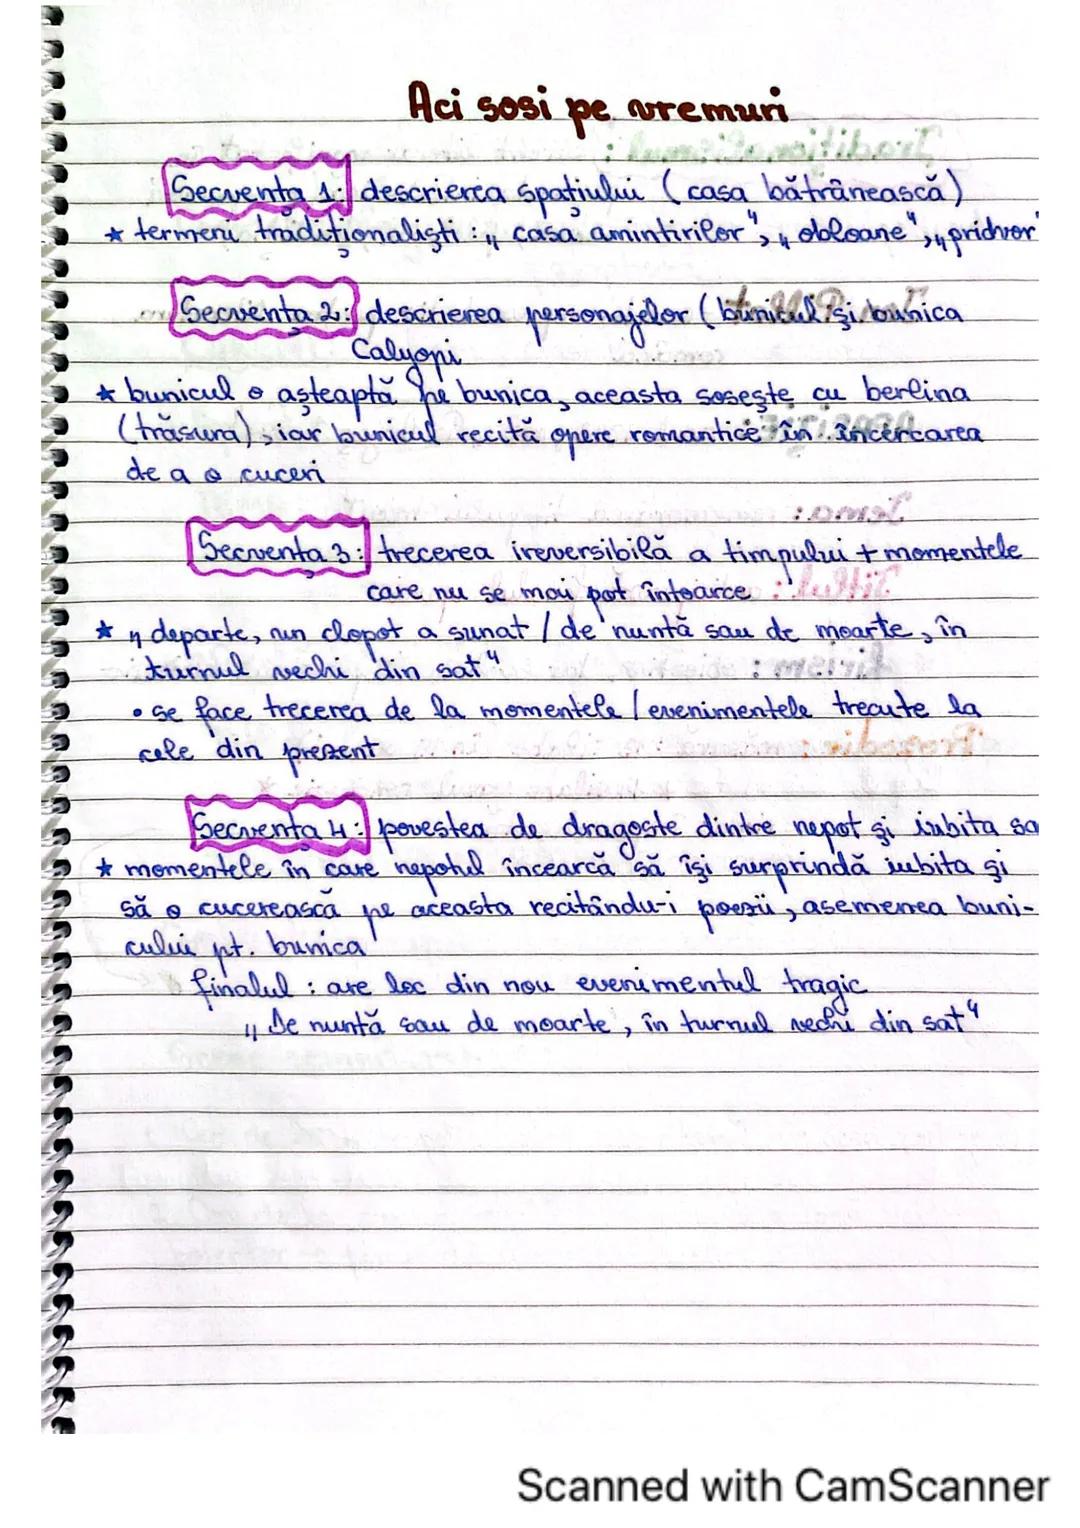 Aci sosi pe vremuri
Secvența 1: descrierea spațiului (casa bătrânească)
* termeni tradiționaliști : „casa amintirilor", „obloane", „pridvor"
Secvența 2: descrierea personajelor (bunicul și bunica
Calyopi
* bunicul o așteaptă pe bunica, aceasta sosește cu berlina
(trăsura), iar bunicul recită opere romantice în încercarea
de a o cuceri
Secvența 3: trecerea ireversibilă a timpului + momentele
care nu se mai pot întoarce
* „departe, un clopot a sunat / de nuntă sau de moarte, în
turnul vechi din sat"
• se face trecerea de la momentele / evenimentele trecute la
cele din prezent
Secvența 4: povestea de dragoste dintre nepot și iubita sa
* momentele în care nepotul încearcă să își surprindă iubita și
să o cucerească pe aceasta recitându-i poezii, asemenea buni-
cului pt. bunica
finalul : are loc din nou evenimentul tragic
„De nuntă sau de moarte, în turnul vechi din sat"
Scanned with CamScanner